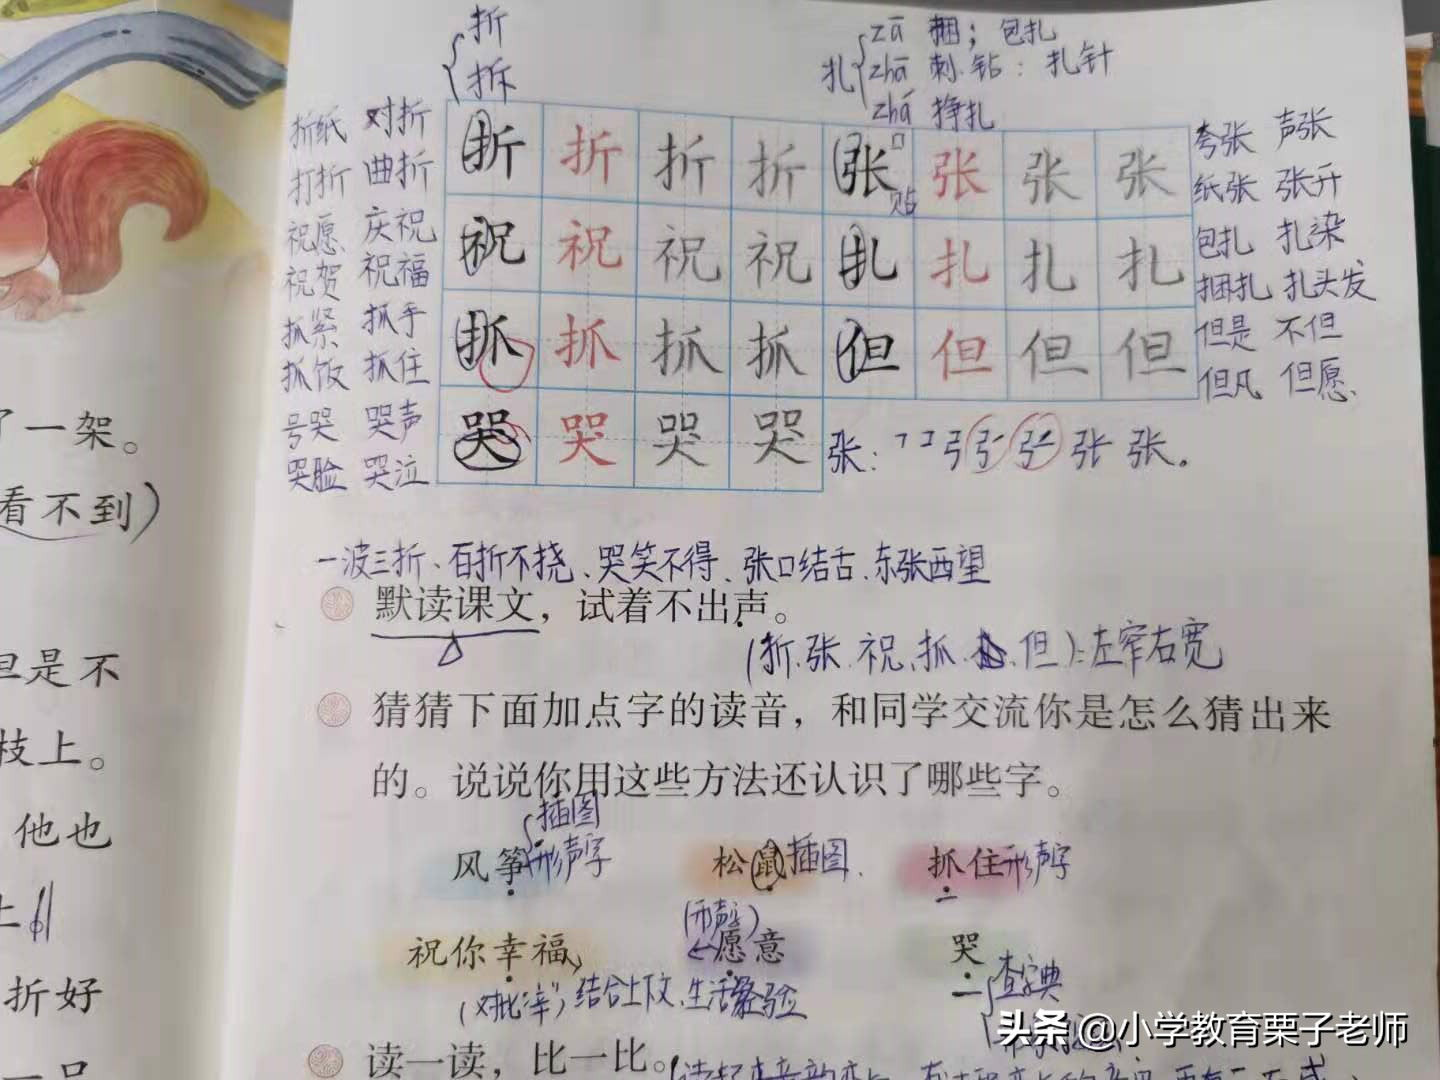 折
拆
扎 zā 捆；包扎
zhā 刺.钻：扎针
zhá 挣扎
折纸 对折
打折 曲折
祝愿 庆祝
祝贺 祝福
抓紧 抓手
抓饭 抓住
号哭 哭声
哭脸 哭泣
折 折 折 折 张 张 张 张
口
贴
祝 祝 祝 祝 扎 扎 扎 扎
抓 抓 抓 抓 但 但 但 但
哭 哭 哭 哭
夸张 声张
纸张 张开
包扎 扎染
捆扎 扎头发
但是 不但
但凡 但愿.
张： 张 张。
一波三折、百折不挠、哭笑不得、张口结舌、东张西望
默读课文，试着不出声。
(折.张.祝.抓.扎.但)：左窄右宽
猜猜下面加点字的读音，和同学交流你是怎么猜出来
的。说说你用这些方法还认识了哪些字。
插图
风筝 形声字
松鼠 插图.
抓住 形声字
(形声字)
祝你幸福 愿意 哭
(对比"辛") 结合上下文、生活经验
查字典
读一读，比一比。
了一架。
看不到)
但是不
枝上。
他也
上
折好
一只
头条@小学教育栗子老师